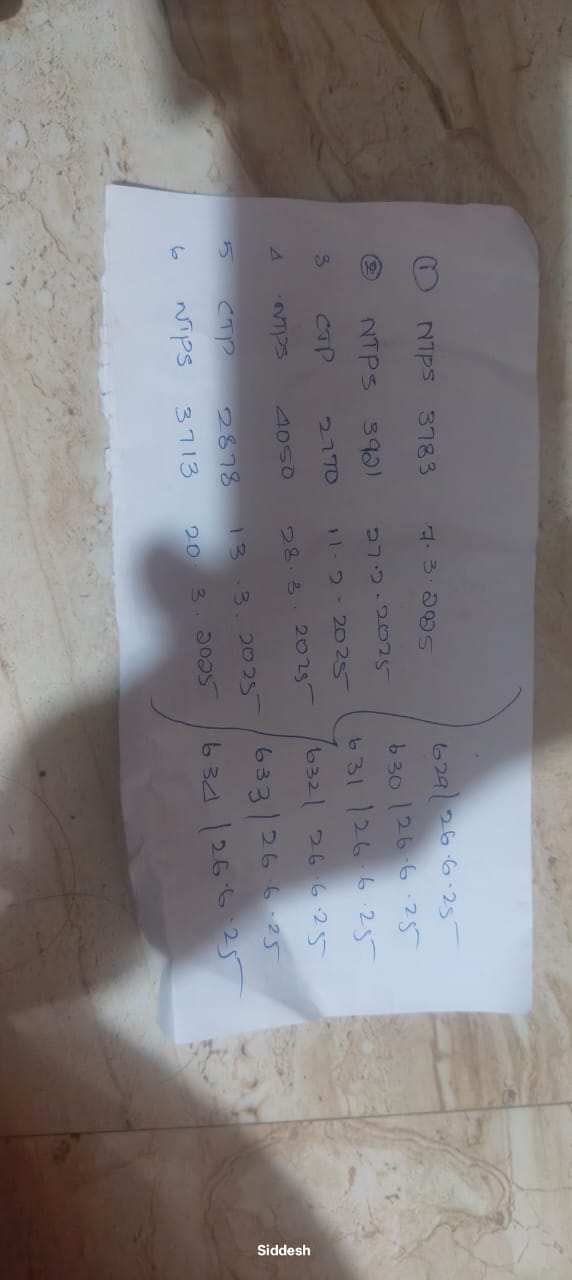 ① NTPS 3783 7.3.2025 629 | 26.6.25
② NTPS 3901 27.2.2025 630 | 26.6.25
3 GTP 2770 11.2.2025 631 | 26.6.25
4 NTPS 4050 28.3.2025 632 | 26.6.25
5 GTP 2878 13.3.2025 633 | 26.6.25
6 NTPS 3713 20.3.2025 634 | 26.6.25
Siddesh